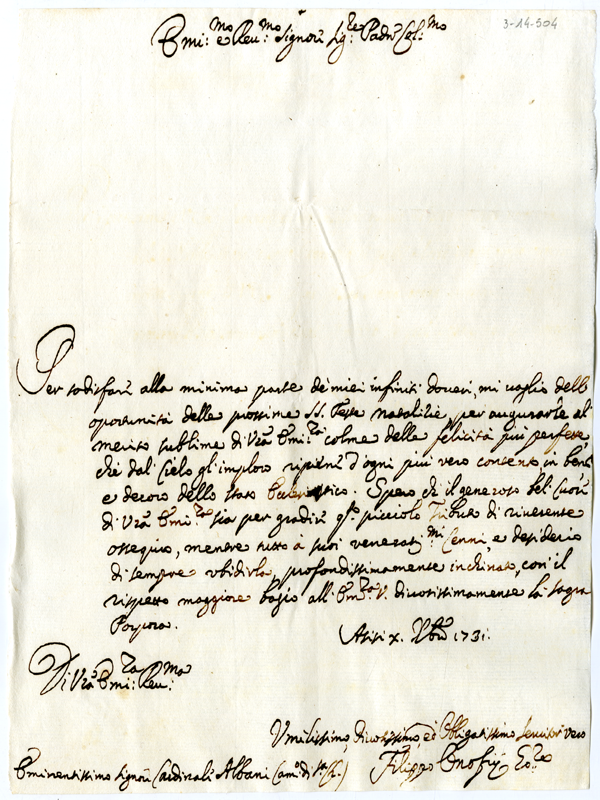 3-14-504
Emi:mo e Reu:mo Signore Sig:re Padrẽ Col:mo
Per sodisfare alla minima parte de miei infiniti doveri, mi vaglio dell'
oportunità delle prossime SS. Feste natalitie, per augurarle al
merito sublime di Vrã Emi:za colme delle felicità più perfette,
che dal Cielo gl'imploro ripiene d'ogni più vero contento, in bene
e decoro dello stato Eccle tico. Spero che il generoso bel Cuore
di Vrã Emi:za sia per gradire q:to picciolo Tributo di riverente
ossequio, mentre tutto à suoi venerati:mi Cenni, e desiderio
di sempre vbidirla, profondissimamente inchinato, con il
rispetto maggiore bagio all' Em:za V. divotissimamente la sagra
Porpora.
Assisi x. Xbre 1731.
Di Vrã Emi:za Reu:ma
Vmilissimo, divotissimo ed Obligatissimo servitor vero
Eminentissimo Signore Cardinale Albani Cam:o di S:ta
Filippo Onofrij